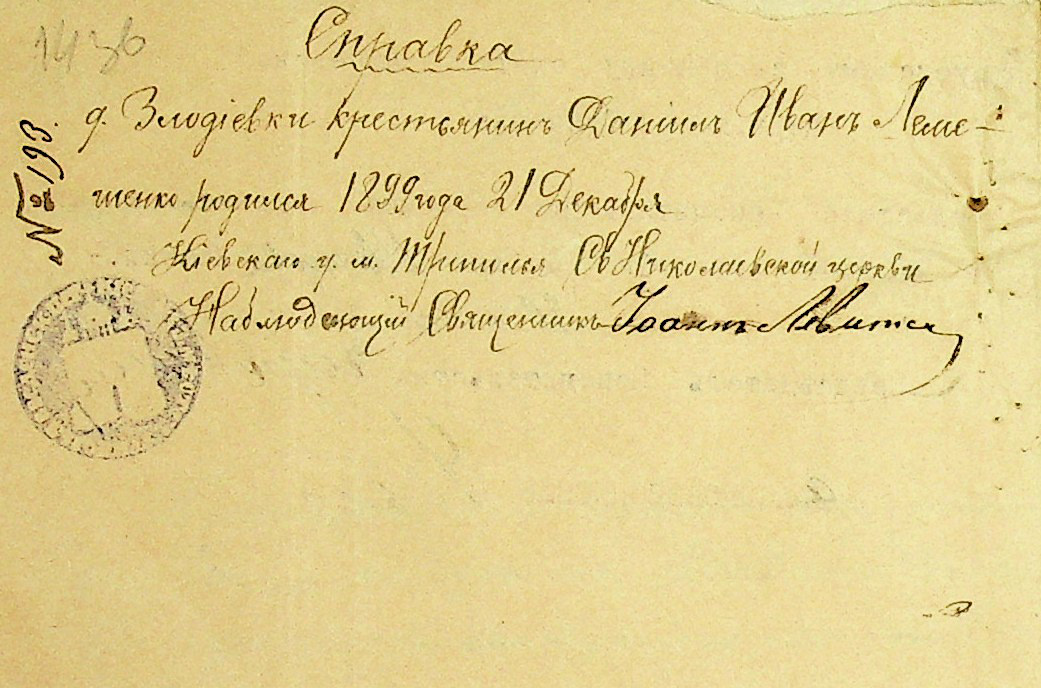 1436
Справка
№ 193.
д. Злодіевки крестьянинъ Даніилъ Иванъ Леме-
шенко родился 1899 года 21 Декабря
Кіевской г. м. Трипилья Св Николаевской церкви
Наблюдающий Священикъ Іоаннъ Левитск